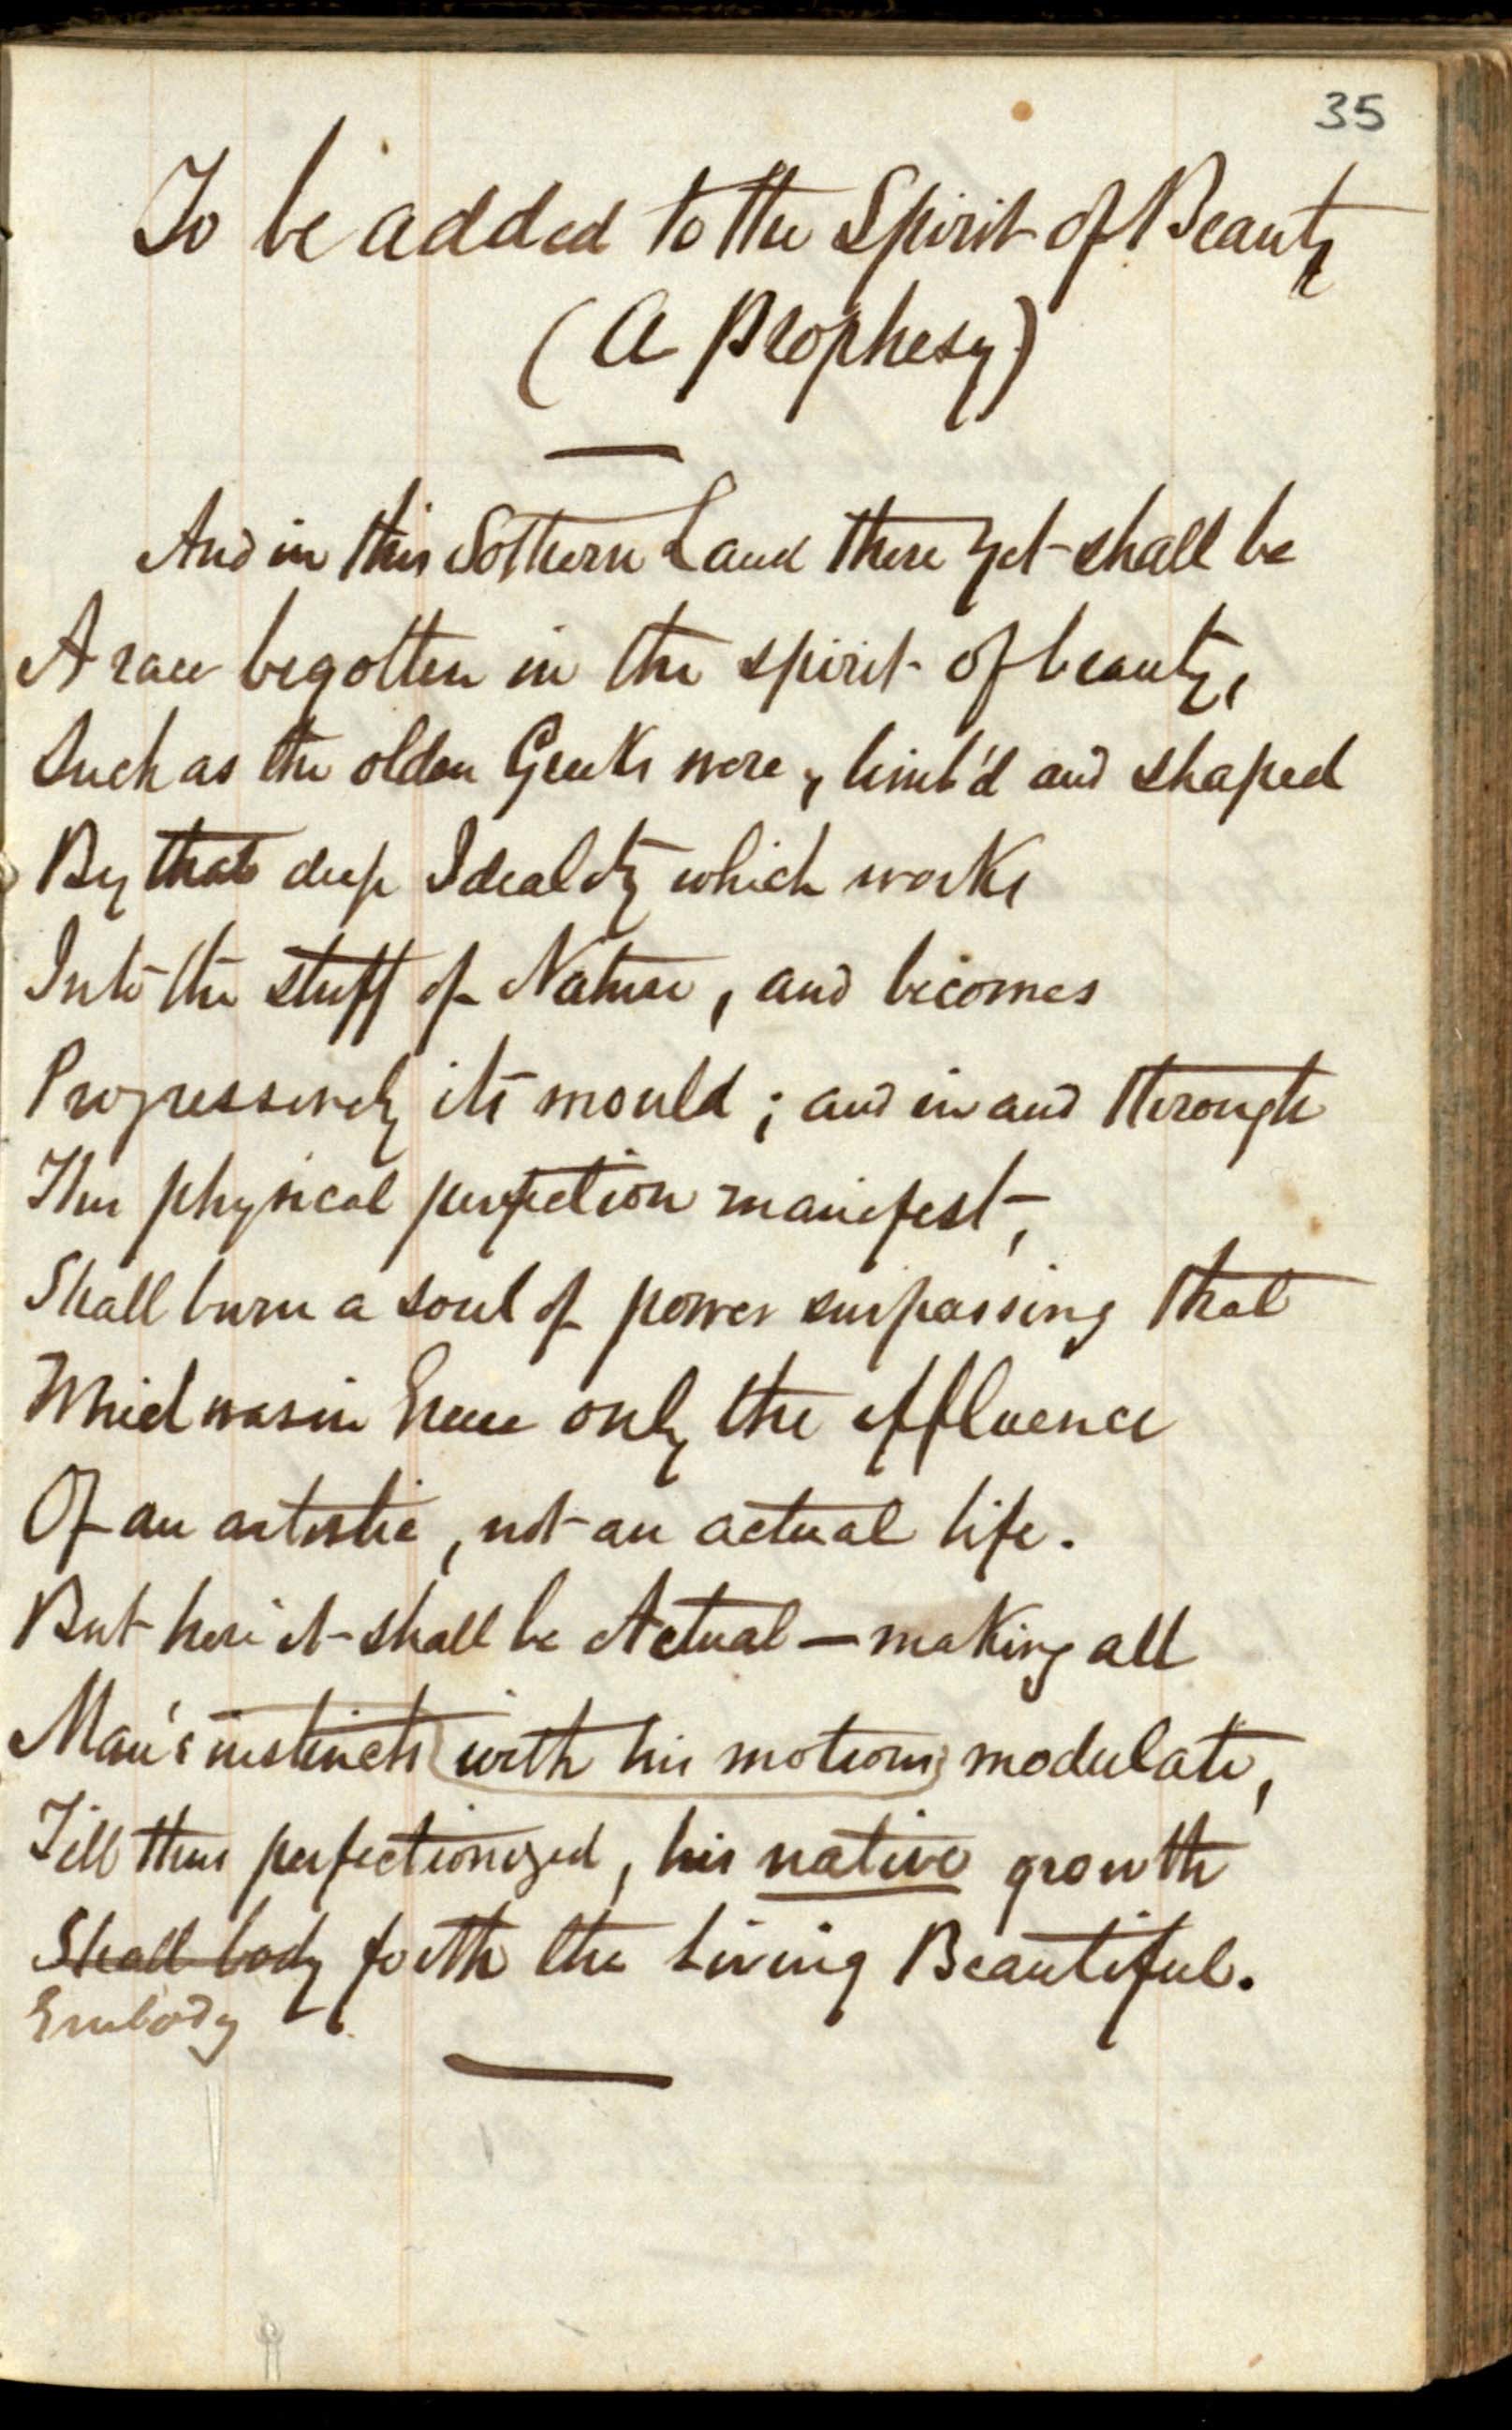 35
To be added to the Spirit of Beauty
(A Prophesy)
And in this Sothern Land there yet shall be
A race begotten in the spirit of beauty,
Such as the olden Greeks were, limb'd and shaped
By that deep Ideality which works
Into the stuff of Nature, and becomes
Progressively its mould; and in and through
This physical perfection manifest,
Shall burn a soul of power surpassing that
Which was in Greece only the effluence
Of an artistic, not an actual life.
But here it shall be Actual — making all
Man's instincts (with his motions) modulate,
Till thus perfectionized, his native growth
Shall body forth the Living Beautiful.
Embody